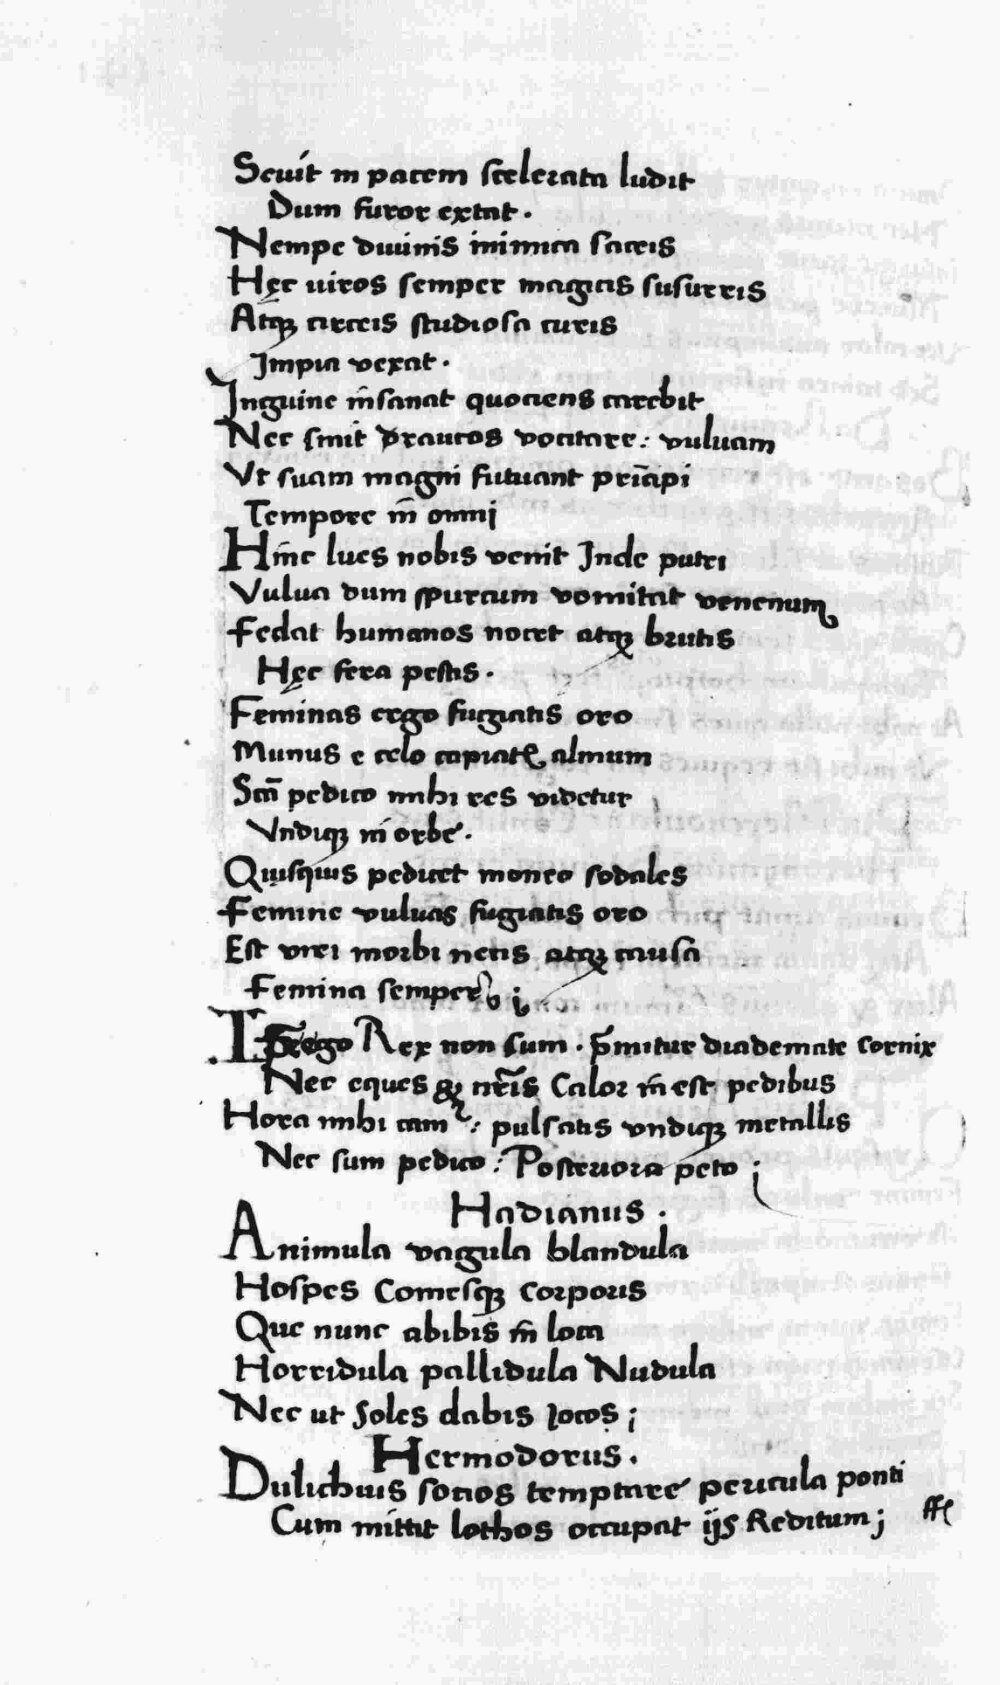 Seuit in pacem scelerata ludit
Dum furor extat.
Nempe diuinis inimica sacris
Hęc uiros semper magicis susurris
Atq; circeis studiosa curis
Impia vexat.
Inguine insanat quociens carebit
Nec sinit draucos vocitare: vuluam
Vt suam magni futuant priapi
Tempore in omni
Hinc lues nobis venit Inde putri
Vulua dum spurcum vomitat venenum
Fedat humanos nocet atq; brutis
Hęc fera pestis.
Feminas ergo fugiatis oro
Munus e celo capiatꝭ almum
Scm̄ pedico mihi res videtur
Vndiq; in orbe.
Quisquis pedicet moneo sodales
Femine vuluas fugiatis oro
Est vrei morbi necis atq; causa
Femina semper
ego Rex non sum. p̄mitur diademate cornix
Nec eques q; nrīs Calor in est pedibus
Hora mihi cam : pulsatis vndiq; metallis
Nec sum pedico: Posteriora peto ;
Hadianus.
Animula vagula blandula
Hospes Comesq; Corporis
Que nunc abibis in̄ loca
Horridula pallidula Nudula
Nec ut soles dabis Jocos ;
Hermodorus.
Dulichius socios temptare pericula ponti
Cum mittit lothos occupat ijs Reditum ;